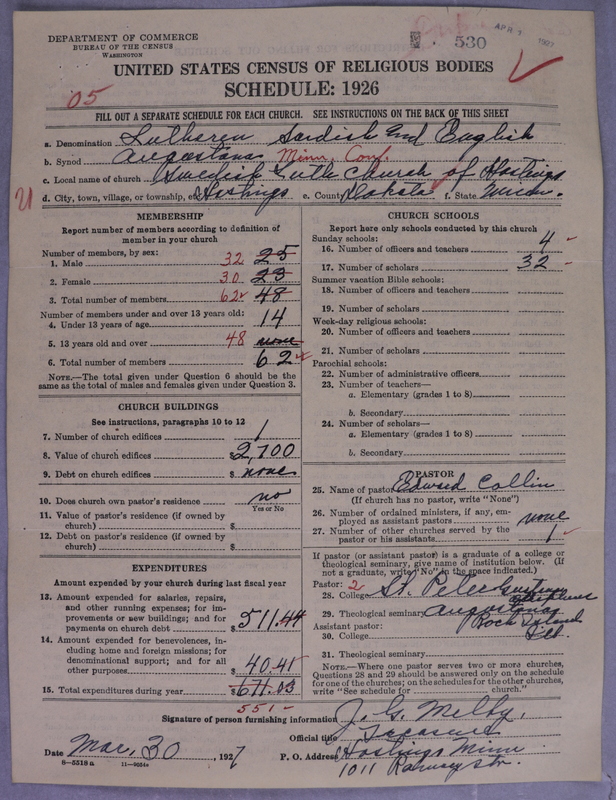 DEPARTMENT OF COMMERCE
BUREAU OF THE CENSUS
WASHINGTON
530
APR 1927
UNITED STATES CENSUS OF RELIGIOUS BODIES
SCHEDULE: 1926
05
FILL OUT A SEPARATE SCHEDULE FOR EACH CHURCH. SEE INSTRUCTIONS ON THE BACK OF THIS SHEET
a. Denomination Lutheren Swedish and English
b. Synod Augustana Minn. Conf.
c. Local name of church Swedish Luth Church of Hastings
d. City, town, village, or township, etc. Hastings e. County Dakota f. State Minn.
MEMBERSHIP
Report number of members according to definition of
member in your church
Number of members, by sex:
1. Male 32 25
2. Female 30 23
3. Total number of members 62 48
Number of members under and over 13 years old:
4. Under 13 years of age 14
5. 13 years old and over 48 none
6. Total number of members 62
NOTE.—The total given under Question 6 should be the
same as the total of males and females given under Question 3.
CHURCH BUILDINGS
See instructions, paragraphs 10 to 12
7. Number of church edifices 1
8. Value of church edifices $2,700
9. Debt on church edifices $ none
10. Does church own pastor's residence no
Yes or No
11. Value of pastor's residence (if owned by
church) $
12. Debt on pastor's residence (if owned by
church) $
EXPENDITURES
Amount expended by your church during last fiscal year
13. Amount expended for salaries, repairs,
and other running expenses; for im-
provements or new buildings; and for
payments on church debt $511.44
14. Amount expended for benevolences, in-
cluding home and foreign missions; for
denominational support; and for all
other purposes $40.41
15. Total expenditures during year $671.03
551-
CHURCH SCHOOLS
Report here only schools conducted by this church
Sunday schools:
16. Number of officers and teachers 4
17. Number of scholars 32
Summer vacation Bible schools:
18. Number of officers and teachers
19. Number of scholars
Week-day religious schools:
20. Number of officers and teachers
21. Number of scholars
Parochial schools:
22. Number of administrative officers
23. Number of teachers—
a. Elementary (grades 1 to 8)
b. Secondary
24. Number of scholars—
a. Elementary (grades 1 to 8)
b. Secondary
PASTOR
25. Name of pastor Edward Collin
(If church has no pastor, write "None")
26. Number of ordained ministers, if any, em-
ployed as assistant pastors none
27. Number of other churches served by the
pastor or his assistants 1
If pastor (or assistant pastor) is a graduate of a college or
theological seminary, give name of institution below. (If
not a graduate, write "No" in the space indicated.)
Pastor: 2
28. College St. Peter Gustavus Adolphus
29. Theological seminary Augustana
Rock Island
Ill.
Assistant pastor:
30. College
31. Theological seminary
NOTE.—Where one pastor serves two or more churches,
Questions 28 and 29 should be answered only on the schedule
for one of the churches; on the schedules for the other churches,
write "See schedule for church."
Signature of person furnishing information J. G. Melby,
Official title Treasurer
Date Mar, 30, 1927 P. O. Address Hastings Minn
1011 Ramsey str.
8—5518a 11—9024